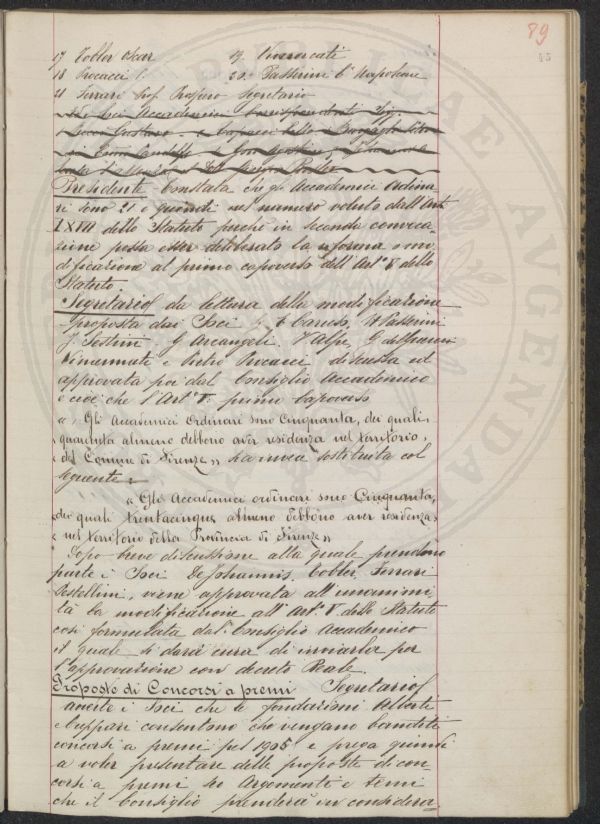 89
45
17 Tobler Oscar 19 Vimercati
18 Procacci P. 20 Passerini C. Napoleone
21 Ferrari Prof. Prospero Segretario
Soci Accademici Corrispondenti Sig.
Presidente Constata che gli Accademici Ordina-
ri sono 21 e quindi nel numero voluto dall'Art.
LXVIII dello Statuto perché in seconda convoca-
zione possa esser deliberato la riforma o mo-
dificazione al primo capoverso dell'Art.° V dello
Statuto.
Segretario da lettura della modificazione
proposta dai Soci F Caruso, N Passerini
J. Sestini G Arcangeli. V Alpe, G
Vimercati e Pietro Procacci discussa ed
approvata poi dal Consiglio Accademico
e cioè che l'Art° V. primo Capoverso
" Gli Accademici Ordinari sono Cinquanta, dei quali
quaranta almeno debbono aver residenza nel territorio
del Comune di Firenze,, sostituita col
seguente:
" Gli Accademici ordinari sono Cinquanta,
dei quali trentacinque almeno debbono aver residenza
nel territorio della Provincia di Firenze ,,
Dopo breve discussione alla quale prendono
parte i Soci De Johannis, Tobler, Ferrari
Pestellini, viene approvata all'unanimi-
tà la modificazione all'Art.° V dello Statuto
così formulata dal Consiglio Accademico
il quale si darà cura di inviarla per
l'approvazione con decreto Reale.
Proposte di Concorsi a premi Segretario
averte i Soci che le fondazioni Alberti
e Cuppari consentono che vengano banditi
concorsi a premi pel 1905 e prega quindi
a voler presentare delle proposte di con-
corsi a premi su Argomenti e temi
che il Consiglio prenderà in considera-